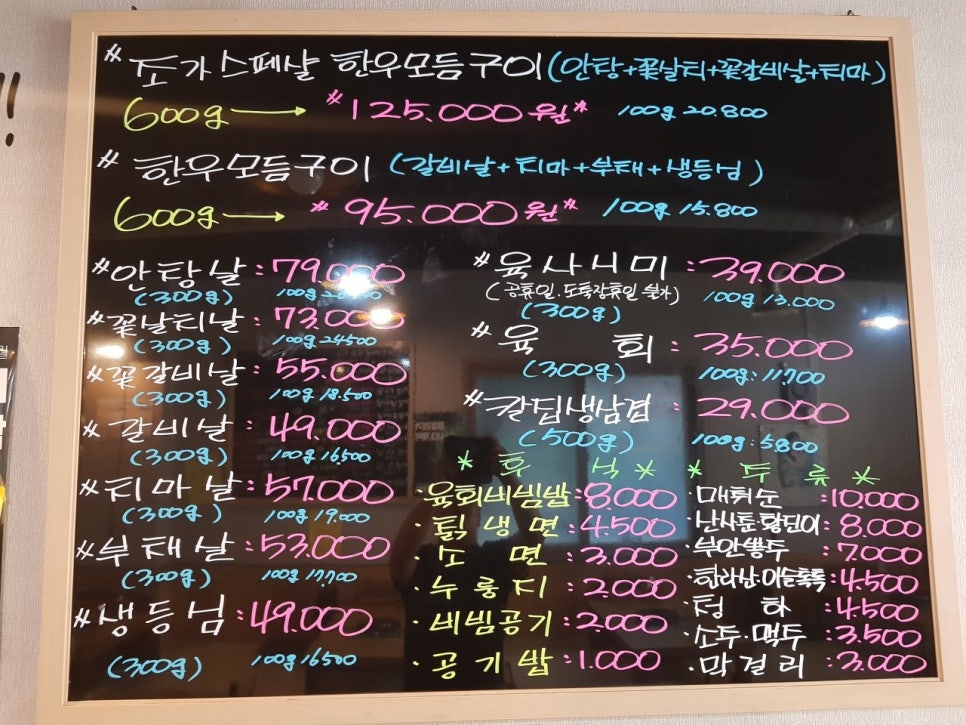 ※ 조가스페샬 한우모듬구이(안창+꽃살치+꽃갈비살+치마)
600g → *125.000원* 100g 20.800
※ 한우모듬구이 (갈비살+치마+부채+생등심)
600g → *95.000원* 100g 15.800
※안창살:79.000
(300g) 100g
※꽃살치살:73.000
(300g) 100g 24500
※꽃갈비살:55.000
(300g) 100g 18.500
※갈비살:49.000
(300g) 100g 16.500
※치마살:57.000
(300g) 100g 19.000
※부채살:53.000
(300g) 100g 17.700
※생등심:49.000
(300g) 100g 16500
※육사시미:39.000
(공휴일.도축장휴일 불가) 100g 13.000
(300g)
※육 회:35.000
(300g) 100g:11.700
※칼집생삼겹:29.000
(500g) 100g:5.800
* 후 식 *
·육회비빔밥:8.000
·칡냉면:4.500
·소면:3.000
·누룽지:2.000
·비빔공기:2.000
·공기밥:1.000
* 주 류 *
·매취순:10.000
·난사툰·황진이:8.000
·부안뽕주:7.000
·한라산·이슬톡톡:4.500
·청하:4.500
·소주·맥주:3.500
·막걸리:3.000